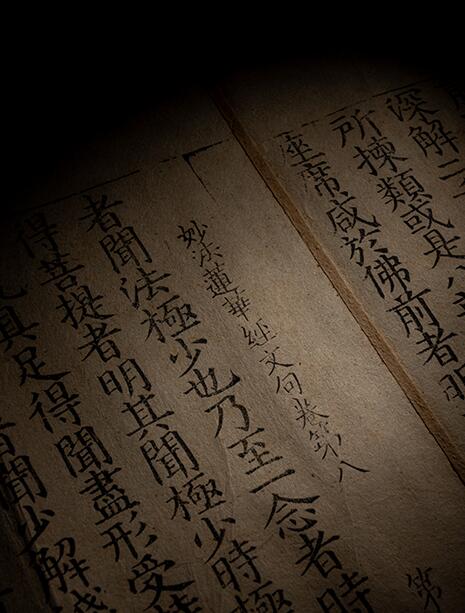 深解
所揀類或是八
座席咸於佛前者明
妙法蓮華經文句卷第八
第
者聞法極少也乃至一念者時
得菩提者明其聞極少時極
具足得聞盡形受持
聞少解